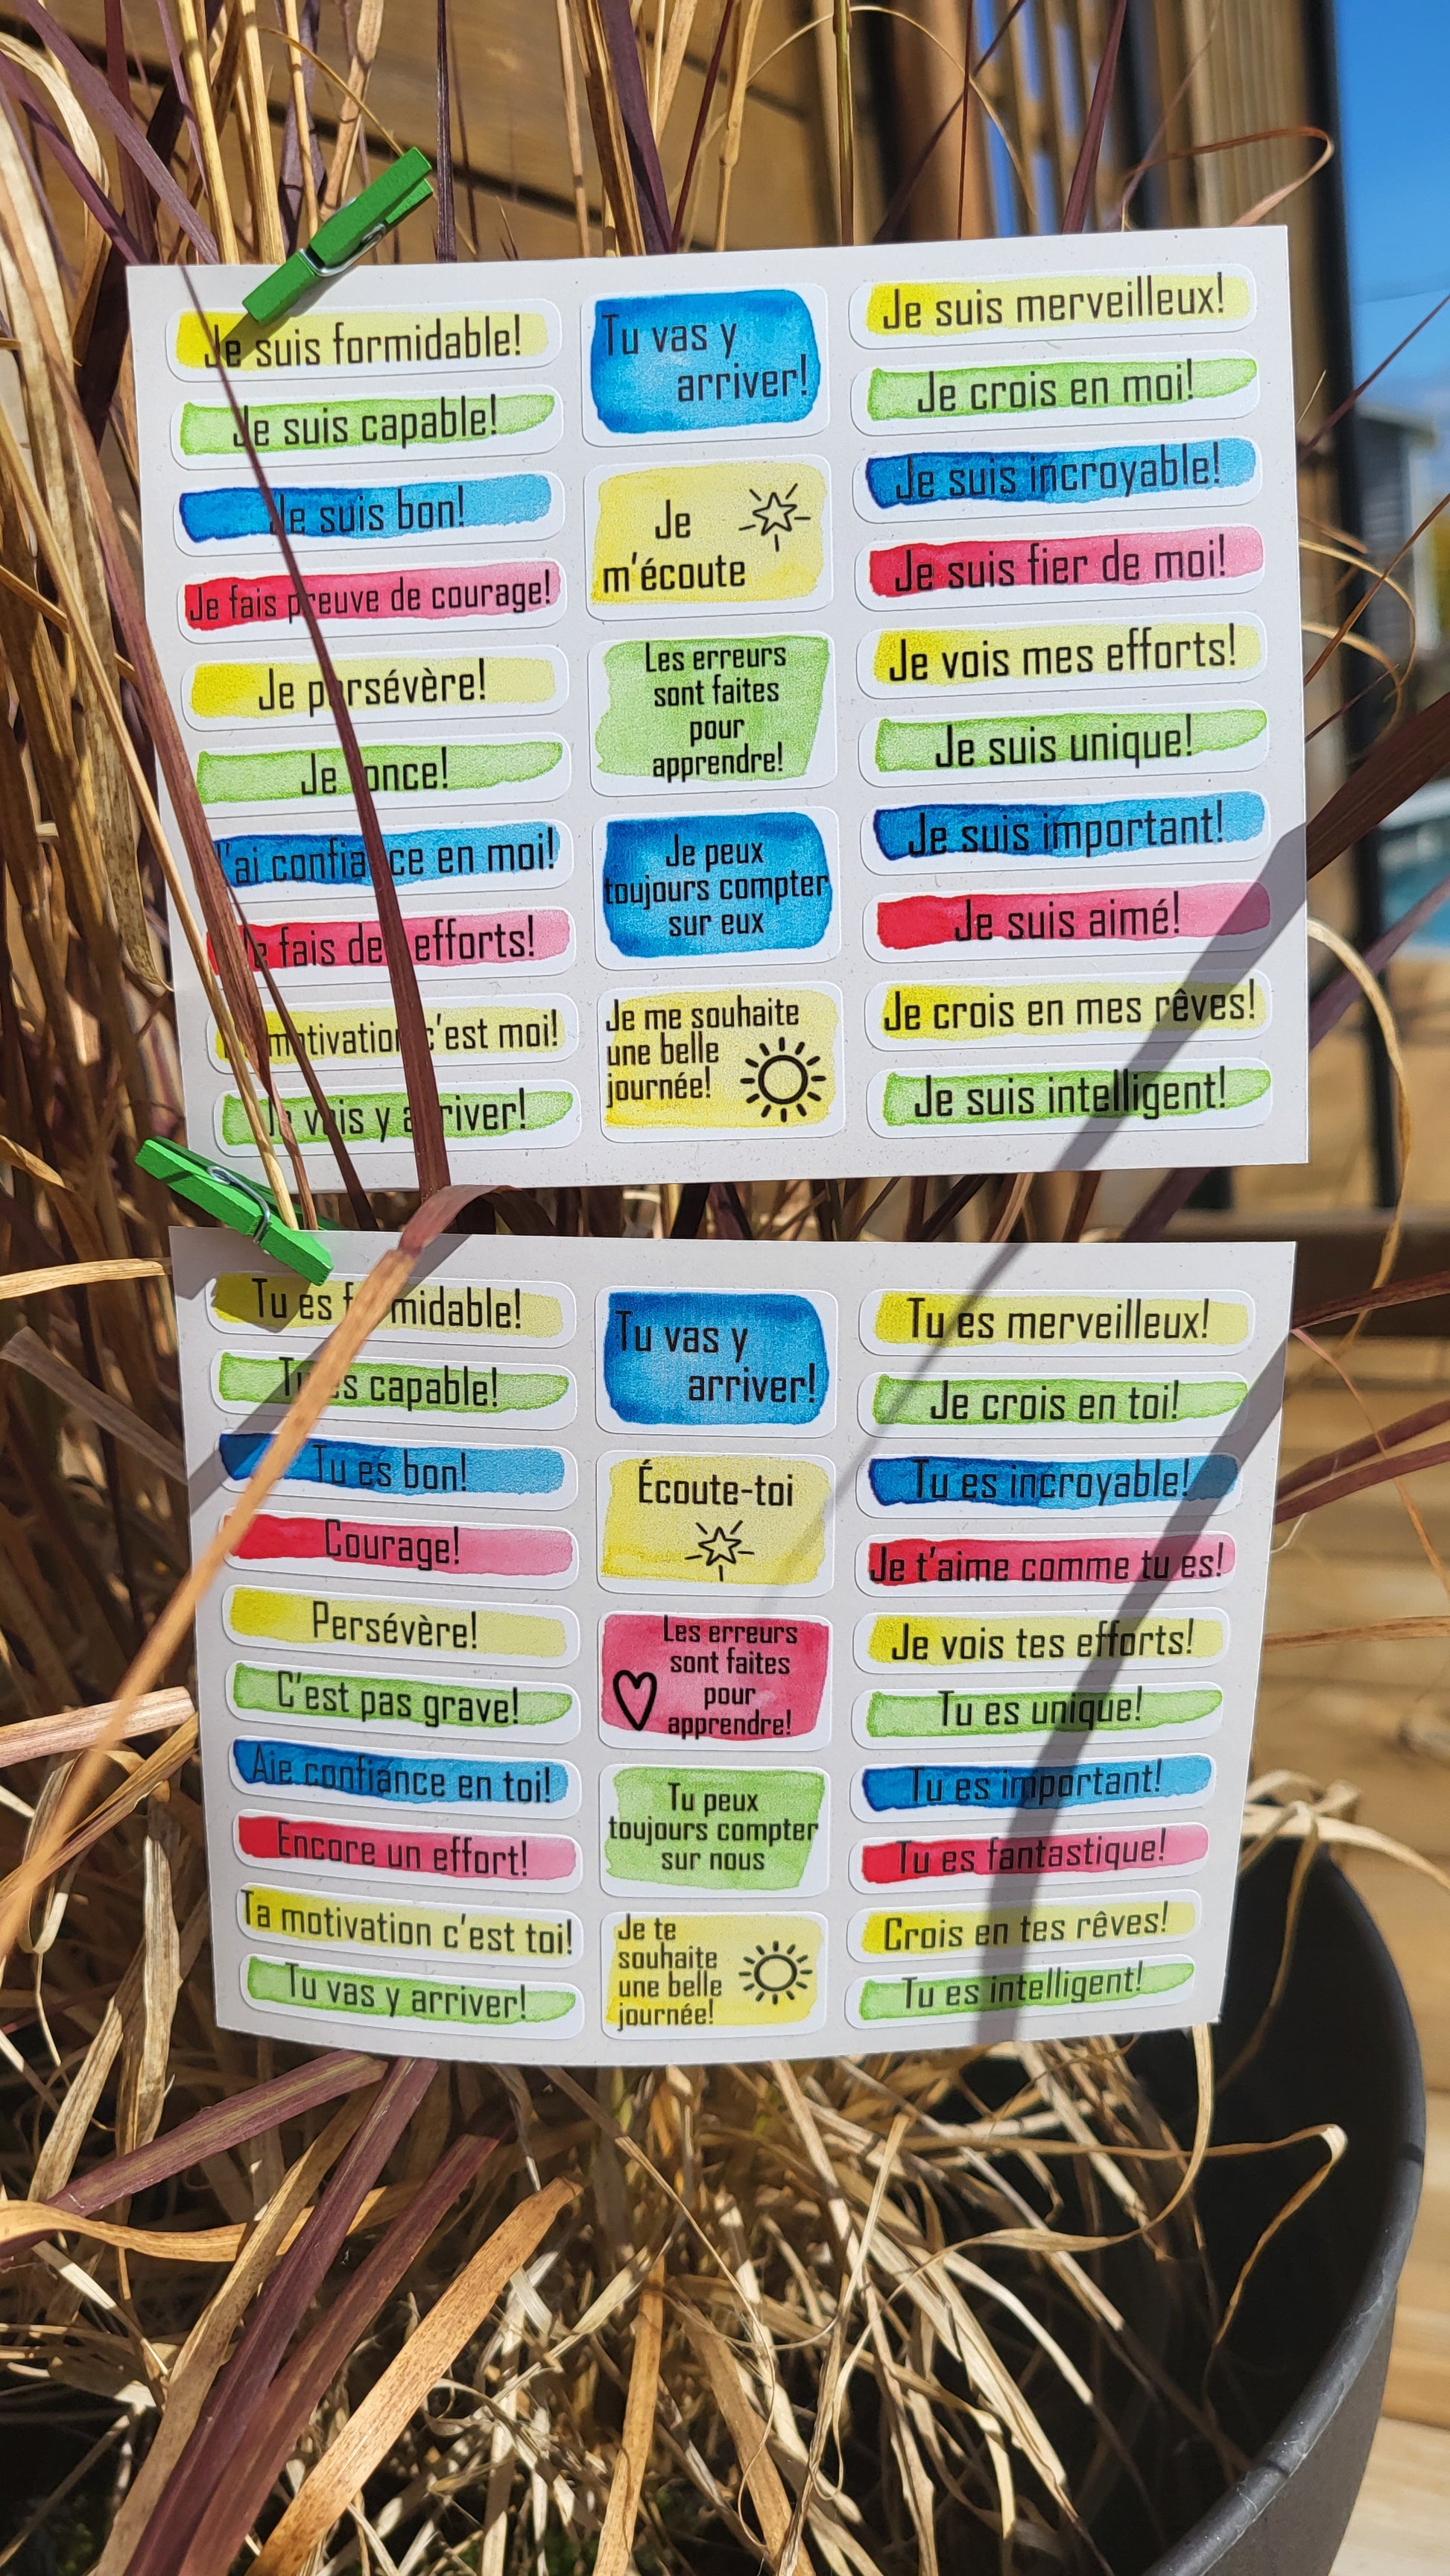 Je suis formidable!
Je suis capable!
Je suis bon!
Je fais preuve de courage!
Je persévère!
Je fonce!
J'ai confiance en moi!
Je fais des efforts!
motivation c'est moi!
Je vais y arriver!
Tu vas y
arriver!
Je
m'écoute
Les erreurs
sont faites
pour
apprendre!
Je peux
toujours compter
sur eux
Je me souhaite
une belle
journée!
Je suis merveilleux!
Je crois en moi!
Je suis incroyable!
Je suis fier de moi!
Je vois mes efforts!
Je suis unique!
Je suis important!
Je suis aimé!
Je crois en mes rêves!
Je suis intelligent!
Tu es formidable!
Tu es capable!
Tu es bon!
Courage!
Persévère!
C'est pas grave!
Aie confiance en toi!
Encore un effort!
Ta motivation c'est toi!
Tu vas y arriver!
Tu vas y
arriver!
Écoute-toi
Les erreurs
sont faites
pour
apprendre!
Tu peux
toujours compter
sur nous
Je te
souhaite
une belle
journée!
Tu es merveilleux!
Je crois en toi!
Tu es incroyable!
Je t'aime comme tu es!
Je vois tes efforts!
Tu es unique!
Tu es important!
Tu es fantastique!
Crois en tes rêves!
Tu es intelligent!